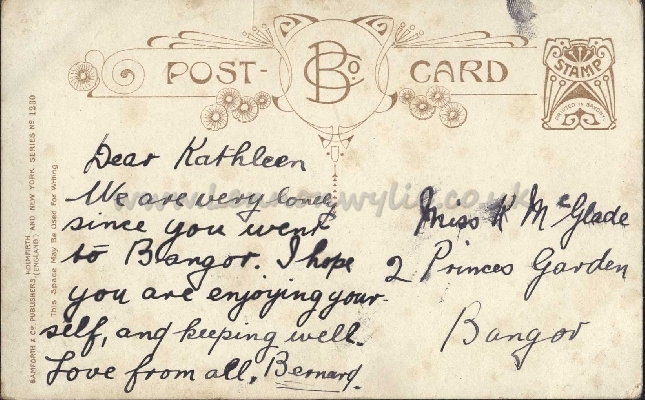 POST- CARD
B Co.
STAMP
PRINTED IN SAXONY
BAMFORTH & CO. PUBLISHERS, HOLMFIRTH AND NEW YORK. SERIES No. 1230
(ENGLAND)
This Space May Be Used For Writing
Dear Kathleen
We are very lonely
since you went
to Bangor. I hope
you are enjoying your
self, and keeping well.
Love from all, Bernard.
Miss K McGlade
2 Princes Garden
Bangor